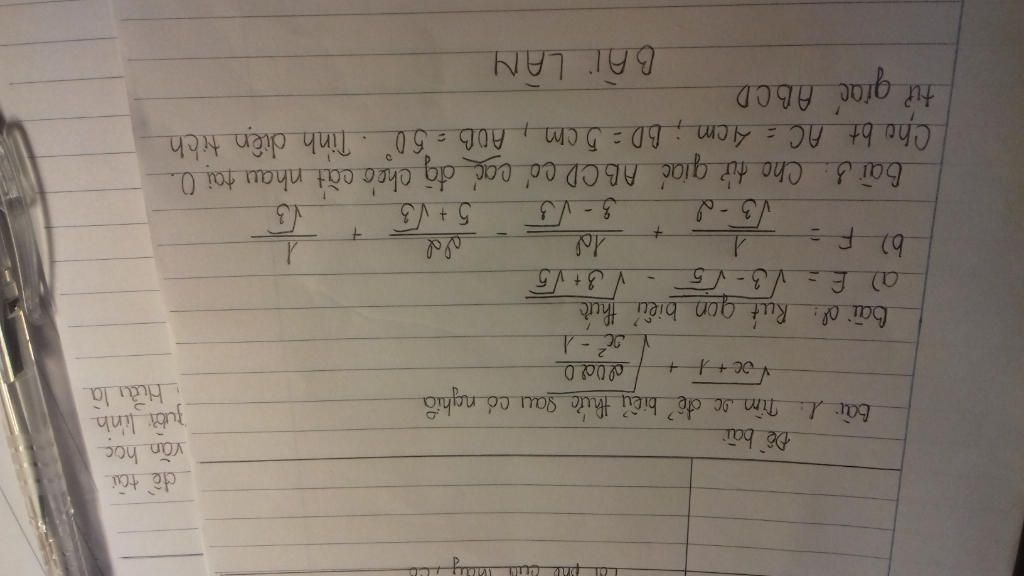 Lời phê của thầy, cô
Đề bài
Bài 1: Tìm x để biểu thức sau có nghĩa
√(x + 1) + √(2020/(x² - 1))
Bài 2: Rút gọn biểu thức
a) E = √(3 - √5) - √(3 + √5)
b) F = 1/(√3 - 2) + 12/(3 - √3) - 22/(5 + √3) + 1/√3
Bài 3: Cho tứ giác ABCD có các đg chéo cắt nhau tại O.
Cho bt AC = 4cm ; BD = 5cm , AOB = 50°. Tính diện tích
tứ giác ABCD
BÀI LÀM
đề tài
văn học
người lính
Hiểu là